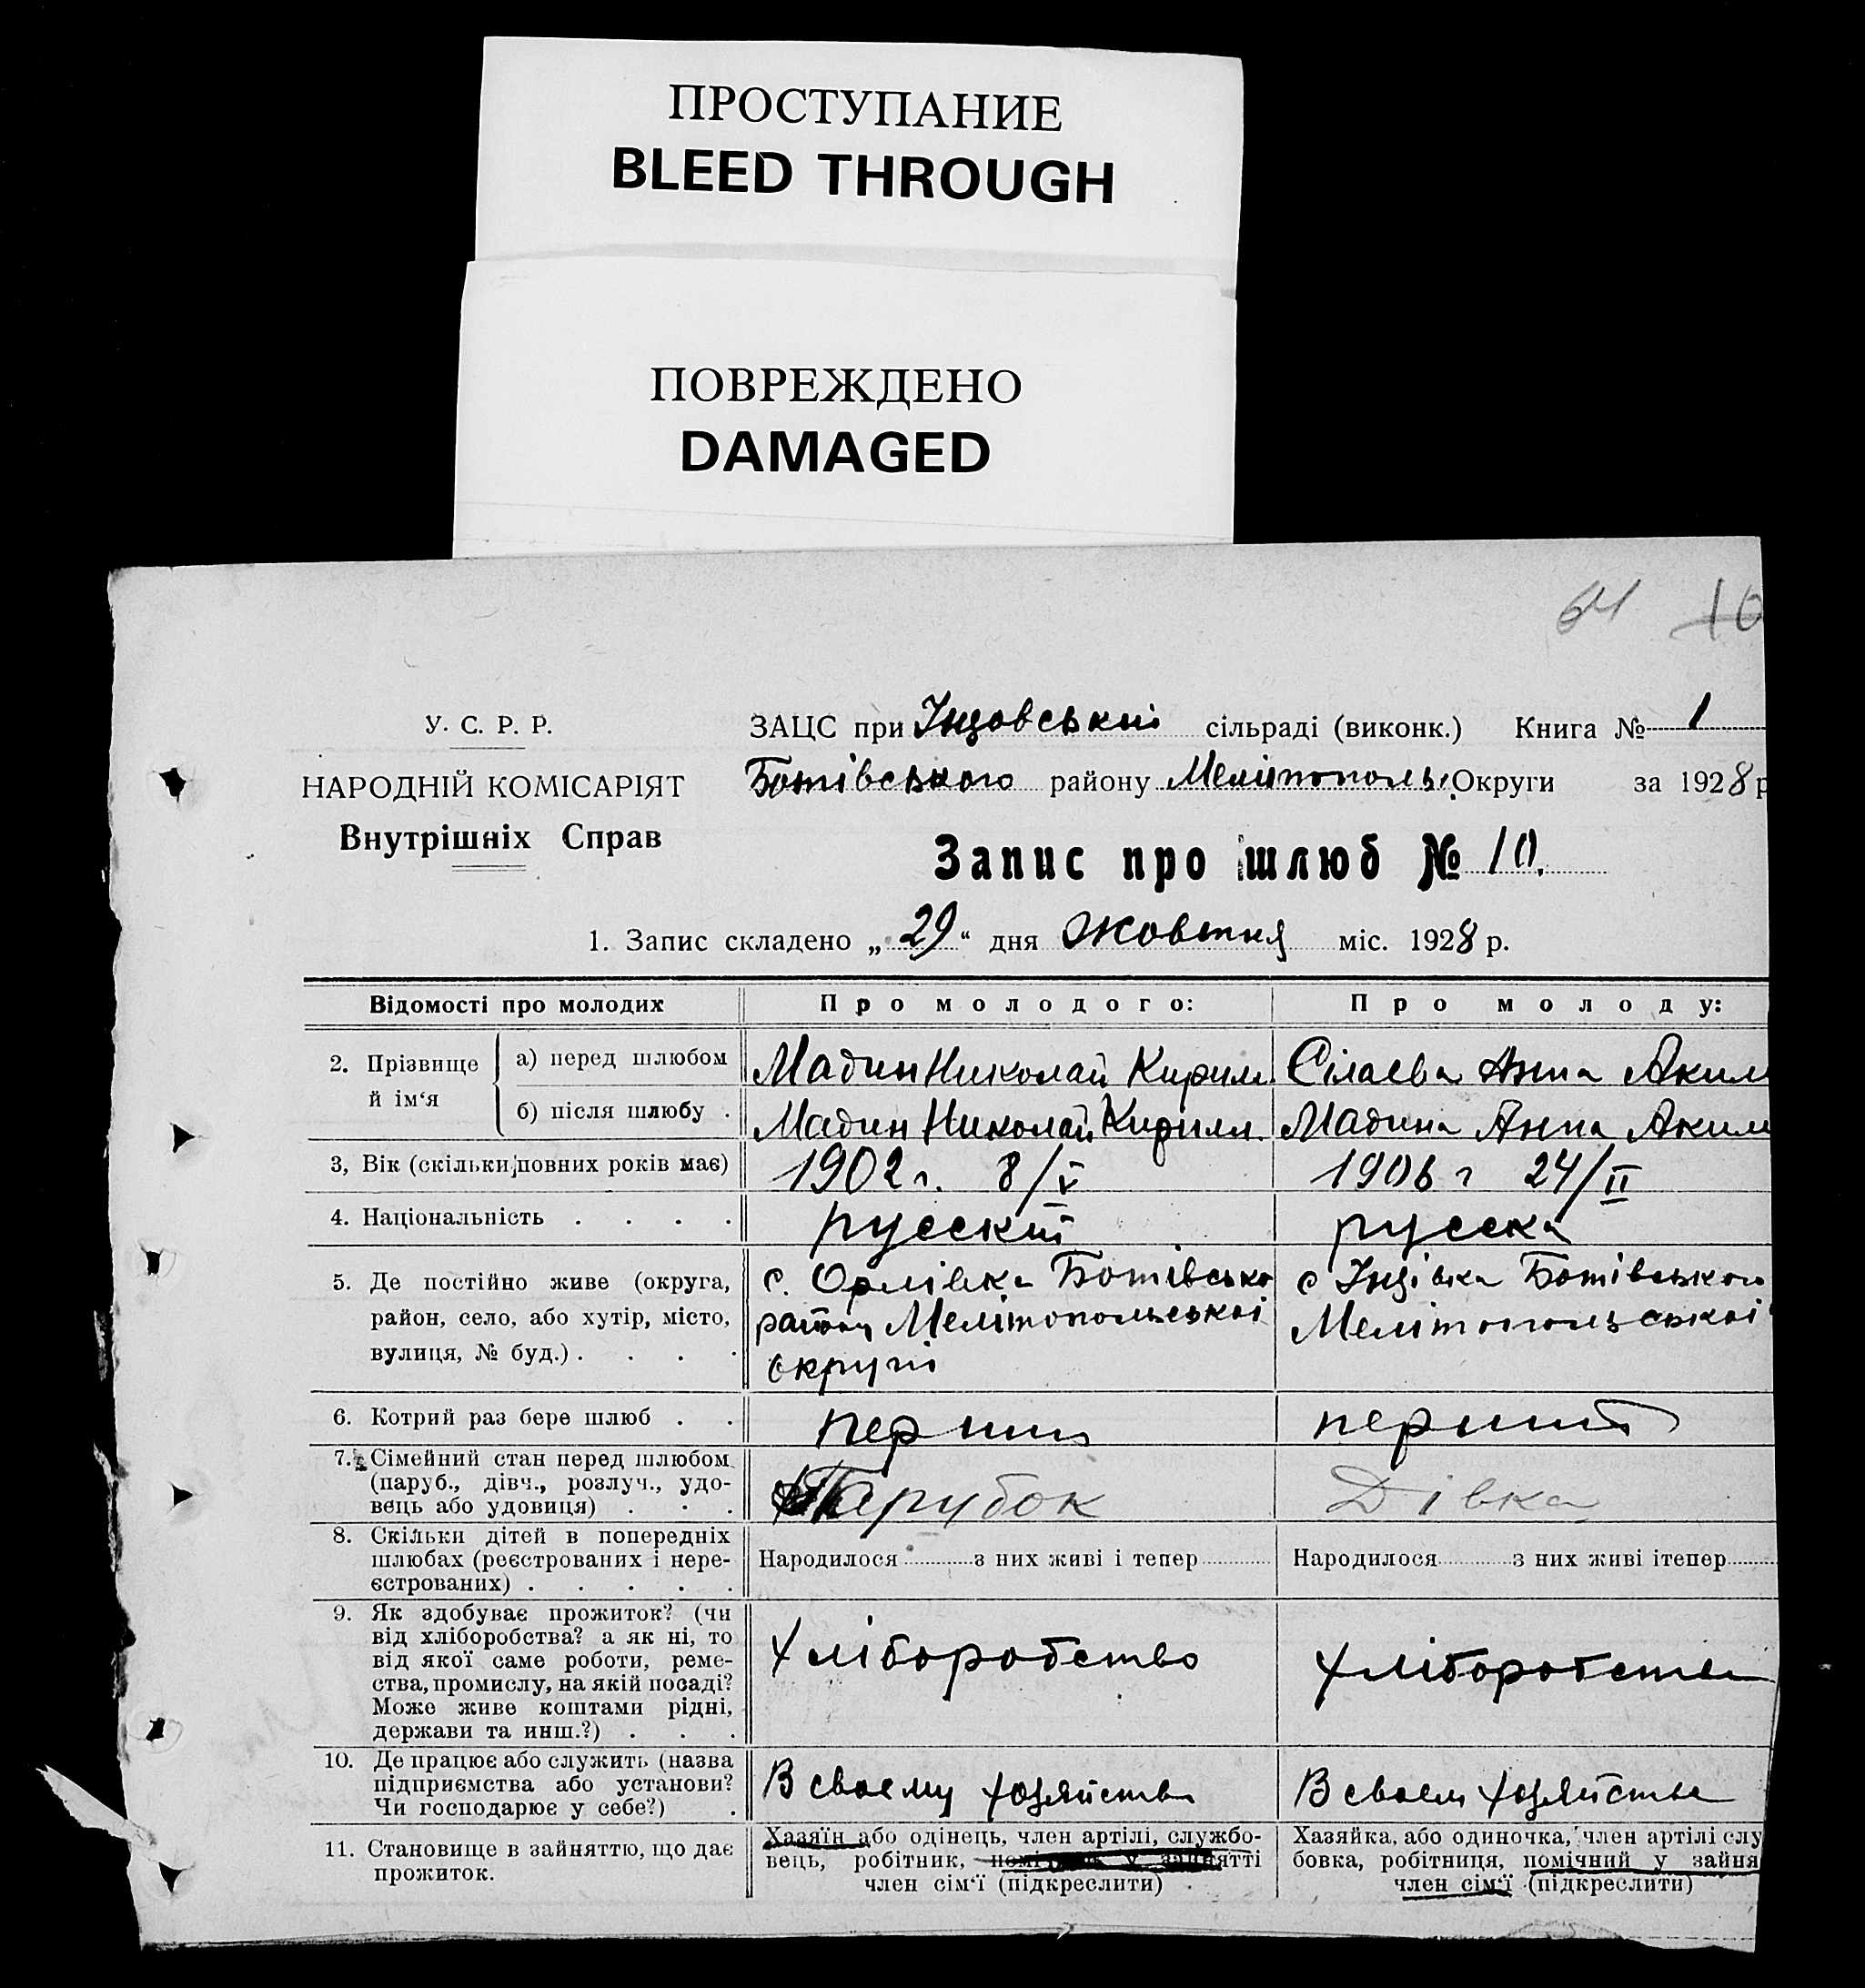 ПРОСТУПАНИЕ
BLEED THROUGH
ПОВРЕЖДЕНО
DAMAGED
64 10
У. С. Р. Р.
НАРОДНІЙ КОМІСАРІЯТ
Внутрішніх Справ
ЗАЦС при Інзовській сільраді (виконк.) Книга № 1
Ботівського району Мелітополь. Округи за 1928 р
Запис про шлюб № 10.
1. Запис складено „ 29 “ дня Жовтня міс. 1928 р.
Відомості про молодих Про молодого: Про молоду:
2. Прізвище й ім‘я
а) перед шлюбом Мадин Николай Кирил. Сілаева Анна Аким
б) після шлюбу . Мадин Николай Кирилл. Мадина Анна Аким
3, Вік (скільки повних років має) 1902 г. 8/V 1906 г 24/II
4. Національність . . . . русский русска
5. Де постійно живе (округа,
район, село, або хутір, місто,
вулиця, № буд.) . . . .
с. Орлівка Ботівсько
району Мелітопольської
округи
с Інзівка Ботівського
Мелітопольської
6. Котрий раз бере шлюб . . перший перший
7. Сімейний стан перед шлюбом
(паруб., дівч., розлуч., удо-
вець або удовиця) . . .
Парубок Дівка
8. Скільки дітей в попередніх
шлюбах (реєстрованих і нере-
єстрованих) . . . . .
Народилося ........ з них живі і тепер ........ Народилося ........ з них живі ітепер ........
9. Як здобуває прожиток? (чи
від хліборобства? а як ні, то
від якої саме роботи, реме-
ства, промислу, на якій посаді?
Може живе коштами рідні,
держави та инш.?) . . .
Хліборобство Хліборобства
10. Де працює або служить (назва
підприємства або установи?
Чи господарює у себе?) .
В своєму хозяйстві В своем хозяйстве
11. Становище в зайняттю, що дає
прожиток.
Хазяїн або одінець, член артілі, службо-
вець, робітник, помічник у зайнятті
член сім‘ї (підкреслити)
Хазяйка, або одиночка, член артілі слу
бовка, робітниця, помічний у зайня
член сім‘ї (підкреслити)